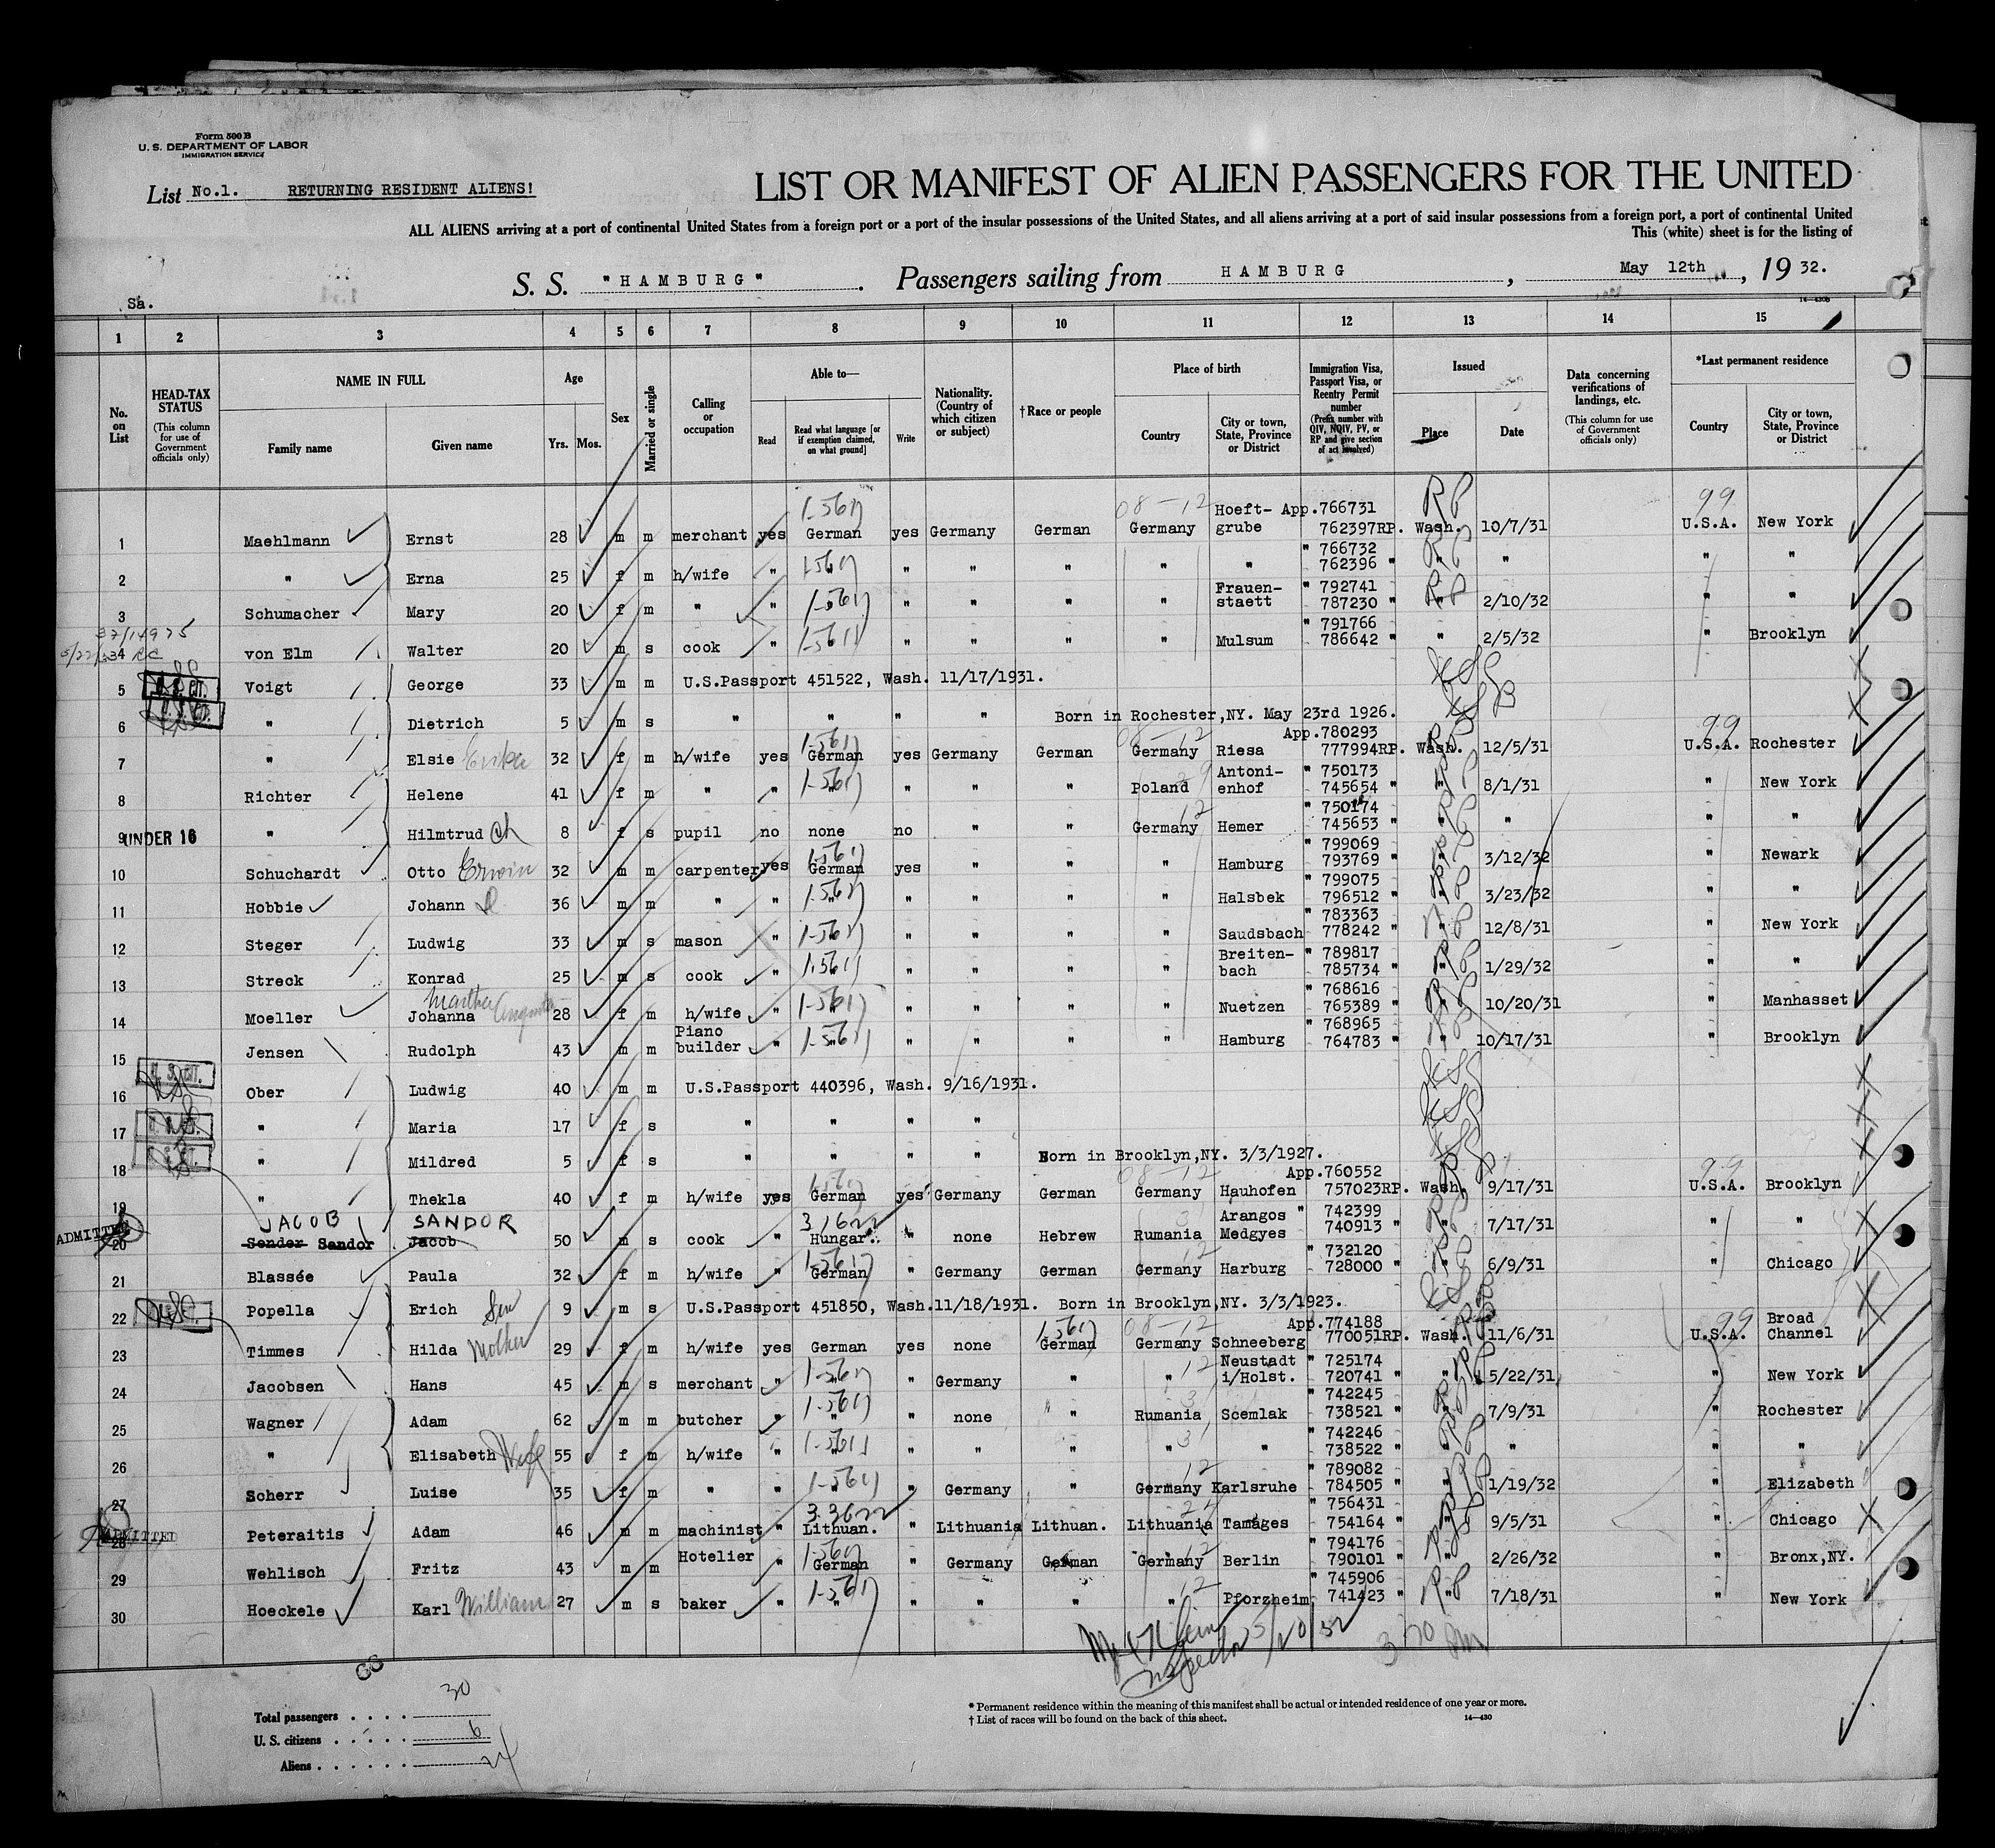 Form 500 B
U. S. DEPARTMENT OF LABOR
IMMIGRATION SERVICE
List No.1. RETURNING RESIDENT ALIENS!
LIST OR MANIFEST OF ALIEN PASSENGERS FOR THE UNITED
ALL ALIENS arriving at a port of continental United States from a foreign port or a port of the insular possessions of the United States, and all aliens arriving at a port of said insular possessions from a foreign port, a port of continental United
This (white) sheet is for the listing of
S. S. "HAMBURG" . Passengers sailing from HAMBURG , May 12th , 19 32.
Sa.
14—430b
1 2 3 4 5 6 7 8 9 10 11 12 13 14 15
No. on List
HEAD-TAX STATUS (This column for use of Government officials only)
NAME IN FULL Family name Given name
Age Yrs. Mos.
Sex
Married or single
Calling or occupation
Able to— Read Read what language [or if exemption claimed, on what ground] Write
Nationality. (Country of which citizen or subject)
† Race or people
Place of birth Country City or town, State, Province or District
Immigration Visa, Passport Visa, or Reentry Permit number (Prefix number with QIV, NQIV, PV, or RP and give section of act involved)
Issued Place Date
Data concerning verifications of landings, etc. (This column for use of Government officials only)
*Last permanent residence Country City or town, State, Province or District
1 Maehlmann Ernst 28 m m merchant yes German yes Germany German Germany Hoeft-grube App.766731 762397RP. Wash. 10/7/31 U.S.A. New York
2 " Erna 25 f m h/wife " " " " " " " " 766732 762396 " " " " "
3 Schumacher Mary 20 f m " " " " " " " Frauen-staett " 792741 787230 " " 2/10/32 " "
4 von Elm Walter 20 m s cook " " " " " " Mulsum " 791766 786642 " " 2/5/32 " Brooklyn
5 Voigt George 33 m m U.S.Passport 451522, Wash. 11/17/1931.
6 " Dietrich 5 m s " " " " Born in Rochester,NY. May 23rd 1926.
7 " Elsie Erika 32 f m h/wife yes German yes Germany German Germany Riesa App.780293 777994RP. Wash. 12/5/31 U.S.A. Rochester
8 Richter Helene 41 f m " " " " " " Poland Antoni-enhof " 750173 745654 " " 8/1/31 " New York
9 UNDER 16 " Hilmtrud ch 8 f s pupil no none no " " Germany Hemer " 750174 745653 " " " " "
10 Schuchardt Otto Erwin 32 m m carpenter yes German yes " " " Hamburg " 799069 793769 " " 3/12/32 " Newark
11 Hobbie Johann 36 m m " " " " " " " Halsbek " 799075 796512 " " 3/23/32 " "
12 Steger Ludwig 33 m s mason " " " " " " Saudsbach " 783363 778242 " " 12/8/31 " New York
13 Streck Konrad 25 m s cook " " " " " " Breiten-bach " 789817 785734 " " 1/29/32 " "
14 Moeller Martha Johanna 28 f m h/wife " " " " " " Nuetzen " 768616 765389 " " 10/20/31 " Manhasset
15 Jensen Rudolph 43 m m Piano builder " " " " " " Hamburg " 768965 764783 " " 10/17/31 " Brooklyn
16 Ober Ludwig 40 m m U.S.Passport 440396, Wash. 9/16/1931.
17 " Maria 17 f s " " " "
18 " Mildred 5 f s " " " " Born in Brooklyn,NY. 3/3/1927.
19 " Thekla 40 f m h/wife yes German yes Germany German Germany Hauhofen App.760552 757023RP. Wash. 9/17/31 U.S.A. Brooklyn
JACOB SANDOR
20 ADMITTED Sender Sandor Jacob 50 m s cook " Hungar. " none Hebrew Rumania Arangos Medgyes " 742399 740913 " " 7/17/31 " "
21 Blassée Paula 32 f m h/wife " German " Germany German Germany Harburg " 732120 728000 " " 6/9/31 " Chicago
22 Popella Erich Son 9 m s U.S.Passport 451850, Wash.11/18/1931. Born in Brooklyn,NY. 3/3/1923.
23 Timmes Hilda Mother 29 f m h/wife yes German yes none German Germany Schneeberg App.774188 770051RP. Wash. 11/6/31 U.S.A. Broad Channel
24 Jacobsen Hans 45 m s merchant " " " Germany " " Neustadt i/Holst. " 725174 720741 " " 5/22/31 " New York
25 Wagner Adam 62 m m butcher " " " none " Rumania Scemlak " 742245 738521 " " 7/9/31 " Rochester
26 " Elisabeth Wife 55 f m h/wife " " " " " " " " 742246 738522 " " " " "
27 Scherr Luise 35 f m " " " " Germany " Germany Karlsruhe " 789082 784505 " " 1/19/32 " Elizabeth
28 ADMITTED Peteraitis Adam 46 m m machinist " Lithuan. " Lithuania Lithuan. Lithuania Tamages " 756431 754164 " " 9/5/31 " Chicago
29 Wehlisch Fritz 43 m m Hotelier " German " Germany German Germany Berlin " 794176 790101 " " 2/26/32 " Bronx,NY.
30 Hoeckele Karl William 27 m s baker " " " " " " Pforzheim " 745906 741423 " " 7/18/31 " New York
Inspector 5/20/32
Total passengers . . . . 30
U. S. citizens . . . . . 6
Aliens . . . . . . 24
* Permanent residence within the meaning of this manifest shall be actual or intended residence of one year or more.
† List of races will be found on the back of this sheet.
14—430